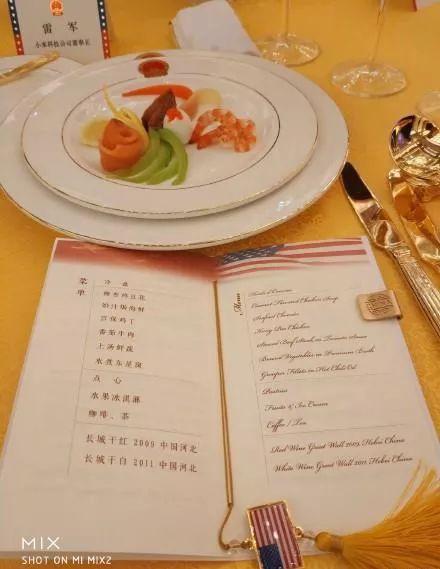 雷 军
小米科技公司董事长
菜单
冷 盘
椰香鸡豆花
奶汁焗海鲜
宫保鸡丁
番茄牛肉
上汤鲜蔬
水煮东星斑
点 心
水果冰淇淋
咖啡、茶
长城干红 2009 中国河北
长城干白 2011 中国河北
Menu
Coconut Flavored Chicken Soup
Seafood Cheese
Kung Pao Chicken
Stewed Beef Steak in Tomato Sauce
Braised Vegetables in Premium Broth
Grouper Fillets in Hot Chili Oil
Pastries
Fruits & Ice Cream
Coffee / Tea
Red Wine Great Wall 2009, Hebei China
White Wine Great Wall 2011, Hebei China
MIX
SHOT ON MI MIX2